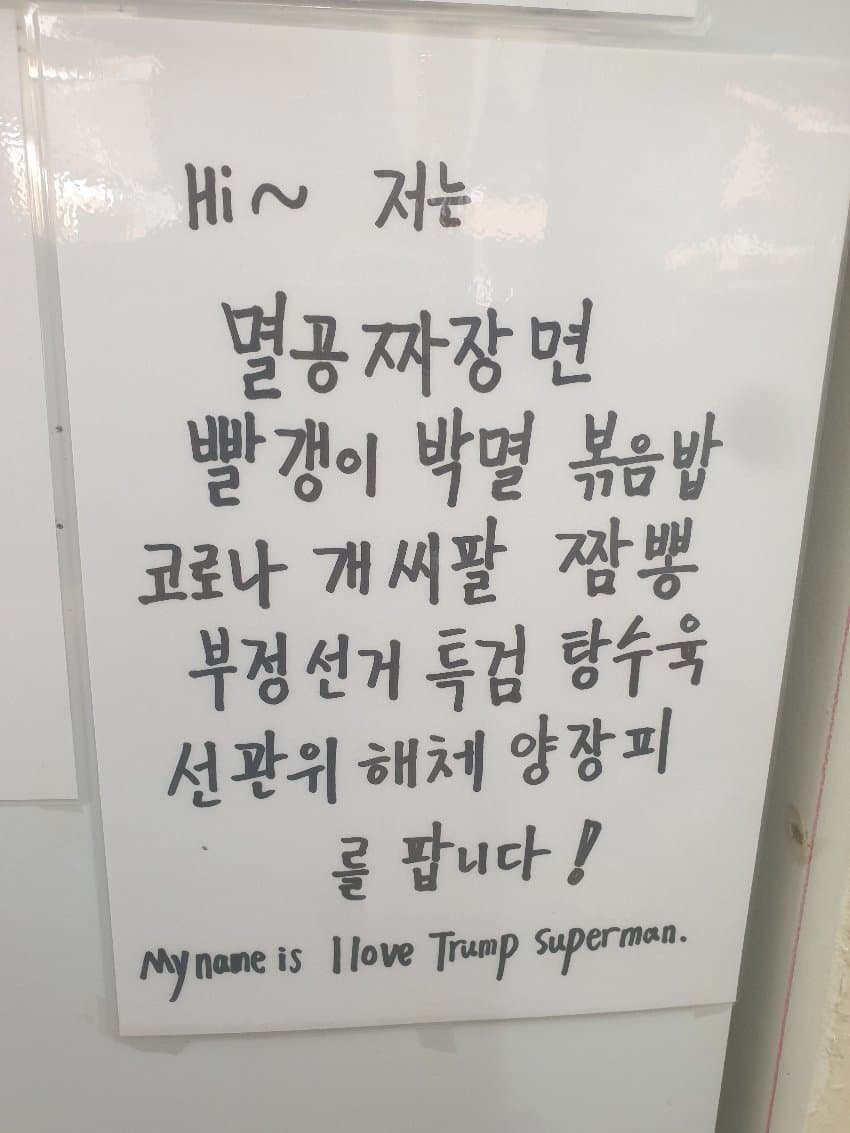 Hi~ 저는
멸공 짜장면
빨갱이 박멸 볶음밥
코로나 개씨팔 짬뽕
부정선거 특검 탕수육
선관위 해체 양장피
를 팝니다!
My name is I love Trump superman.